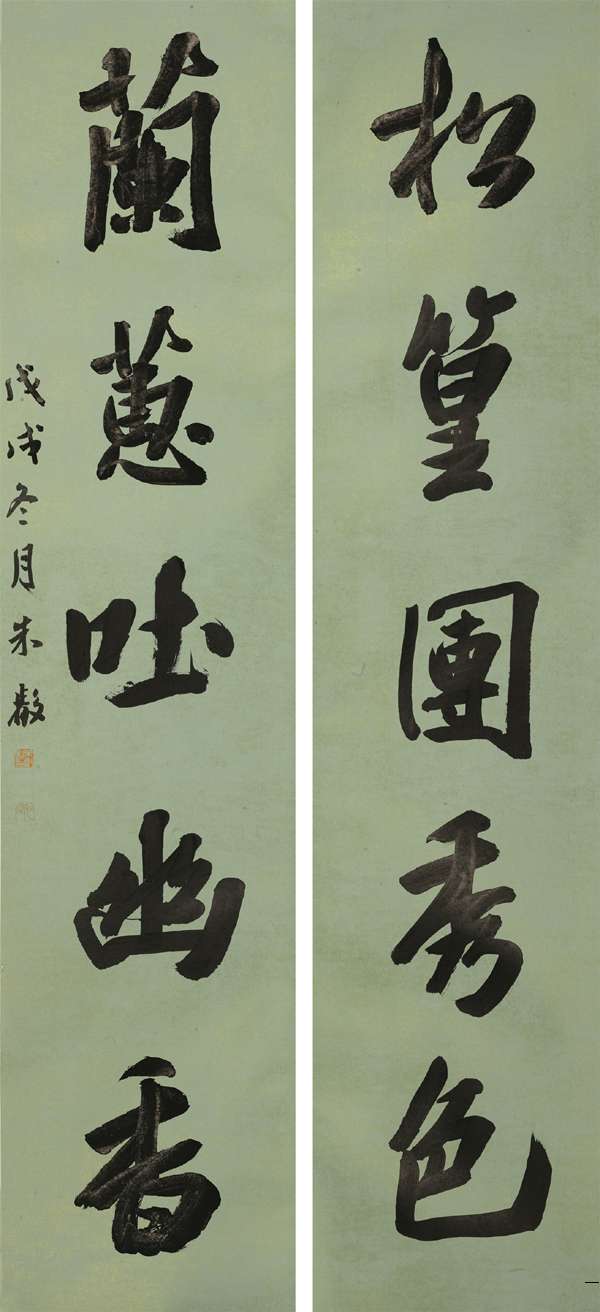 松篁團秀色
蘭蕙吐幽香
戊戌冬月朱